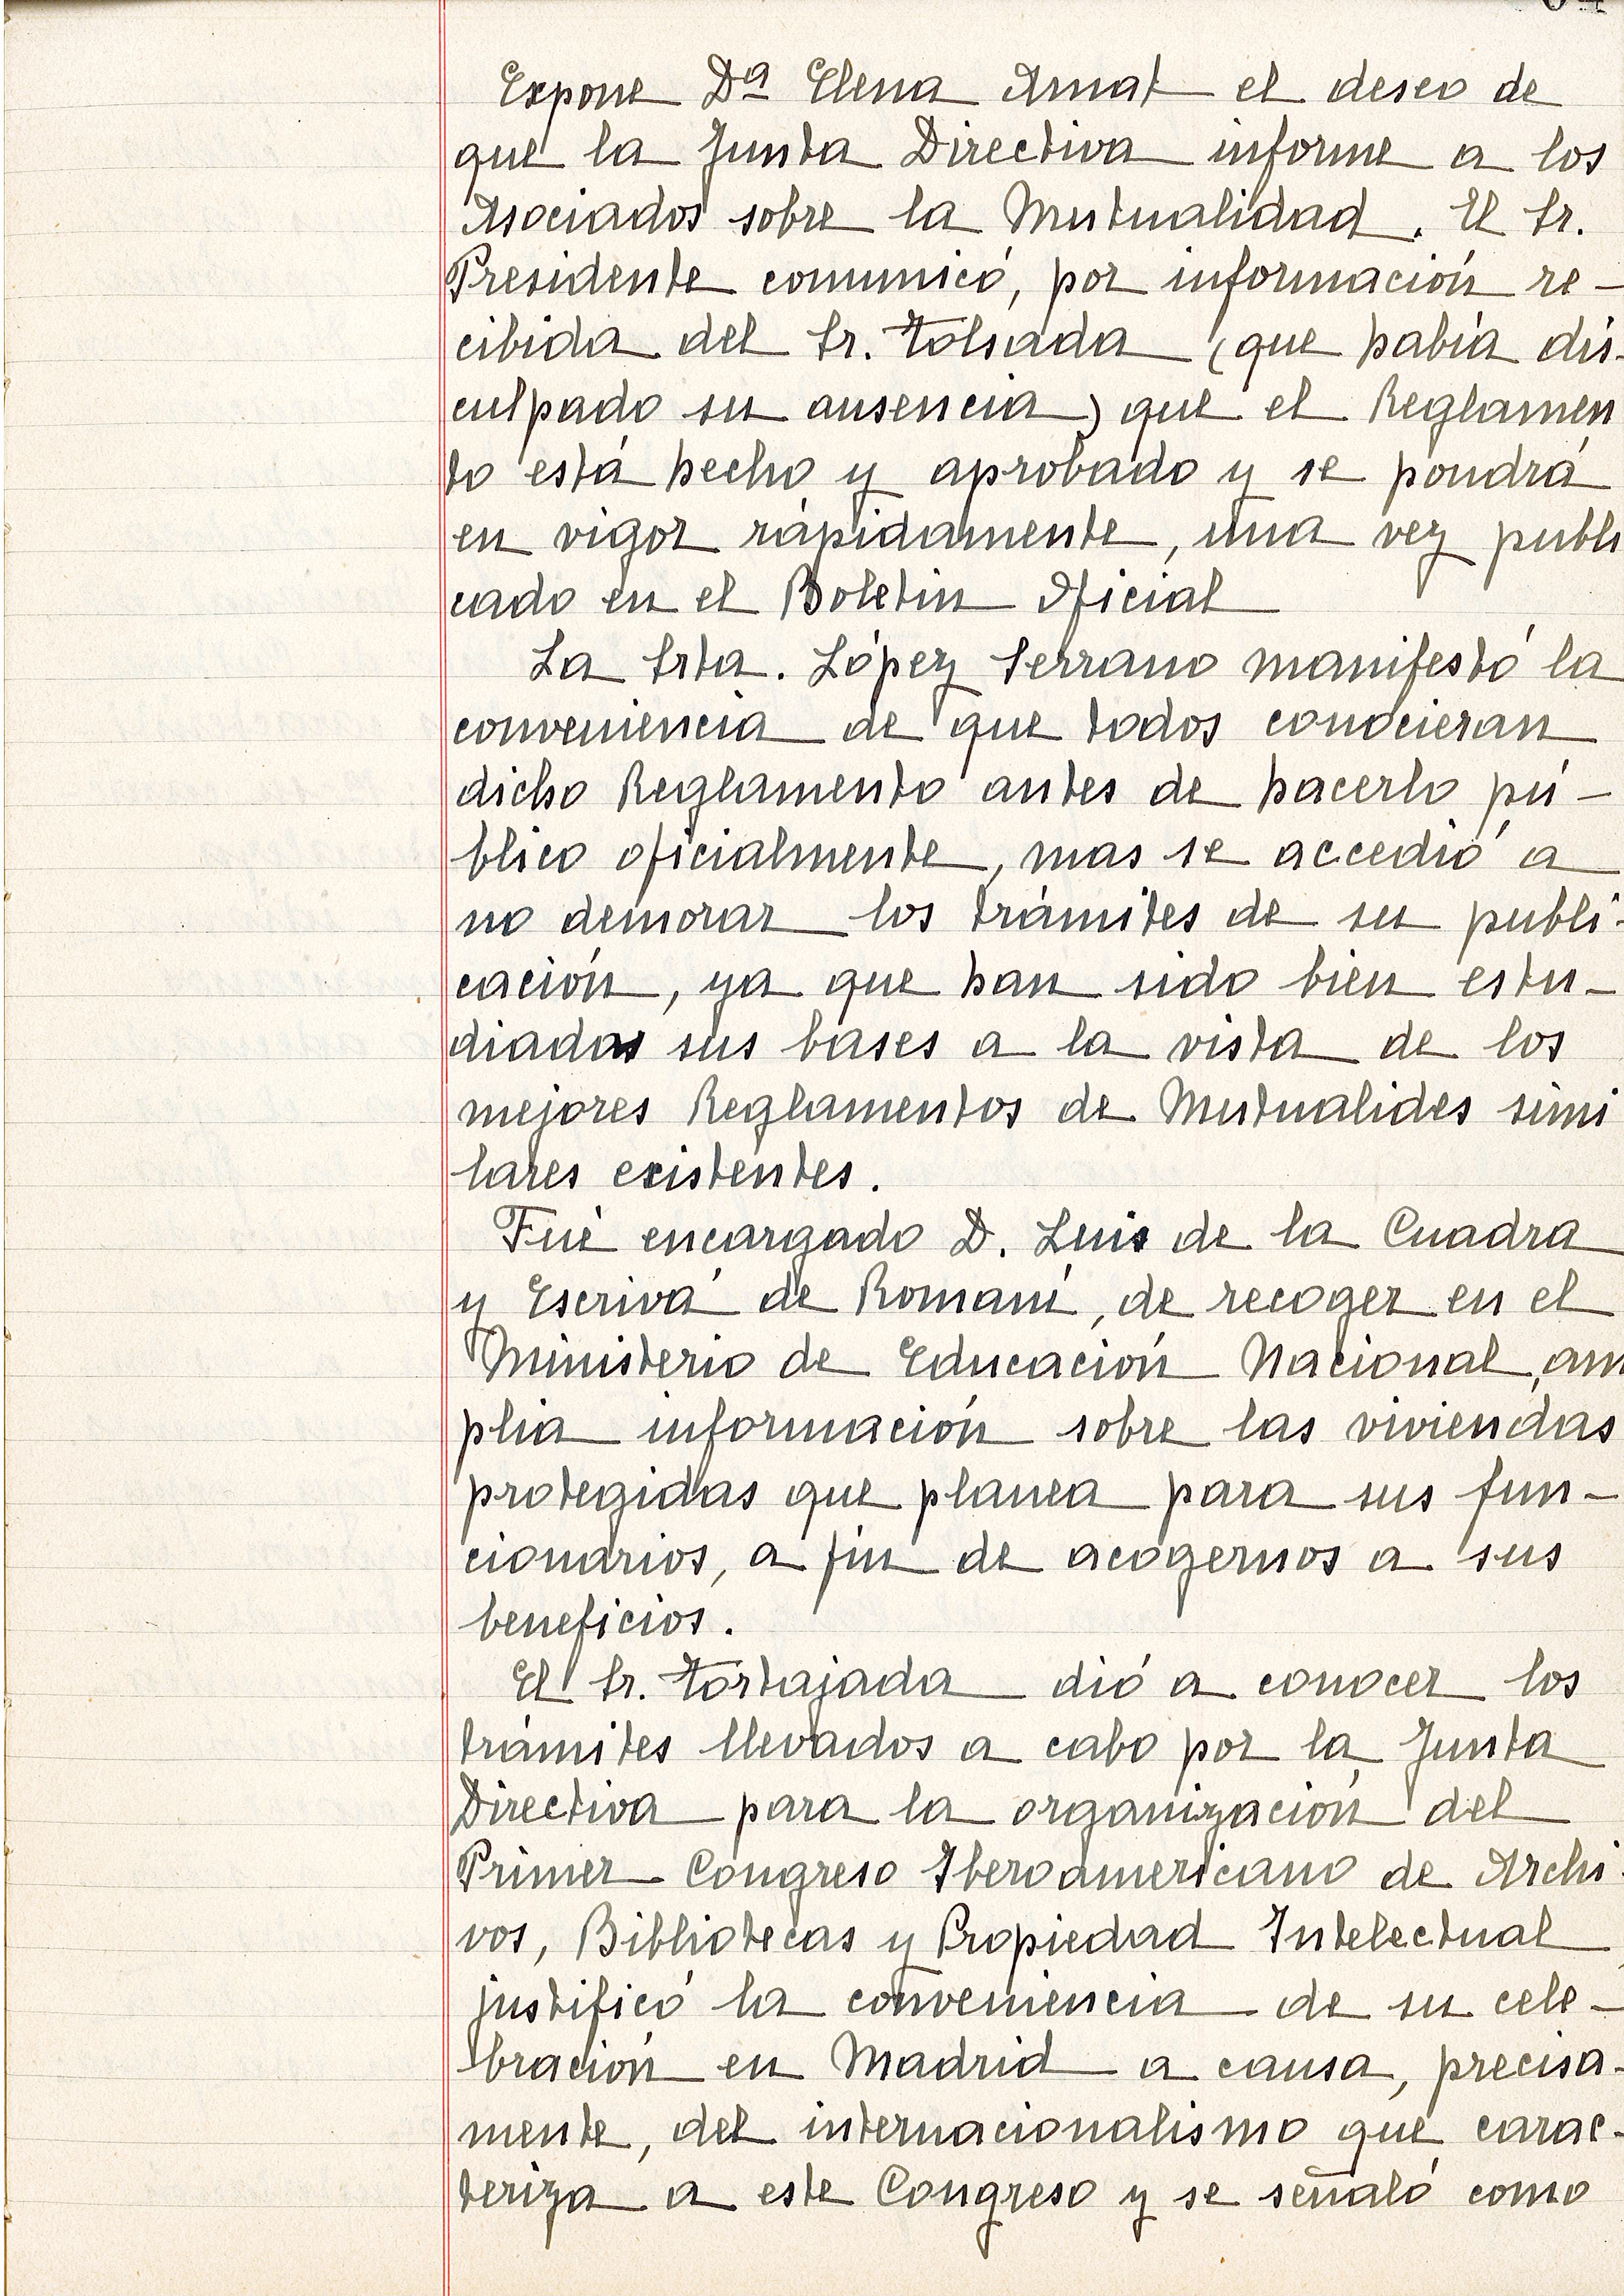 Expone Dª Elena Amat el deseo de
que la Junta Directiva informe a los
Asociados sobre la Mutualidad. El Sr.
Presidente comunicó, por información re-
cibida del Sr. Tolsada (que había dis-
culpado su ausencia) que el Reglamen
to está hecho y aprobado y se pondrá
en vigor rápidamente, una vez publi
cado en el Boletin Oficial
La Srta. López Serrano manifestó la
conveniencia de que todos conocieran
dicho Reglamento antes de hacerlo pú-
blico oficialmente, mas se accedió a
no demorar los trámites de su publi-
cación, ya que han sido bien estu-
diadas sus bases a la vista de los
mejores Reglamentos de Mutualides simi
lares existentes.
Fué encargado D. Luis de la Cuadra
y Escrivá de Romaní, de recoger en el
Ministerio de Educación Nacional, am
plia información sobre las viviendas
protegidas que planea para sus fun-
cionarios, a fin de acogernos a sus
beneficios.
El Sr. Tortajada dió a conocer los
trámites llevados a cabo por la Junta
Directiva para la organización del
Primer Congreso Iberoamericano de Archi-
vos, Bibliotecas y Propiedad Intelectual,
justificó la conveniencia de su cele-
bración en Madrid a causa, precisa-
mente, del internacionalismo que carac-
teriza a este Congreso y se señaló como